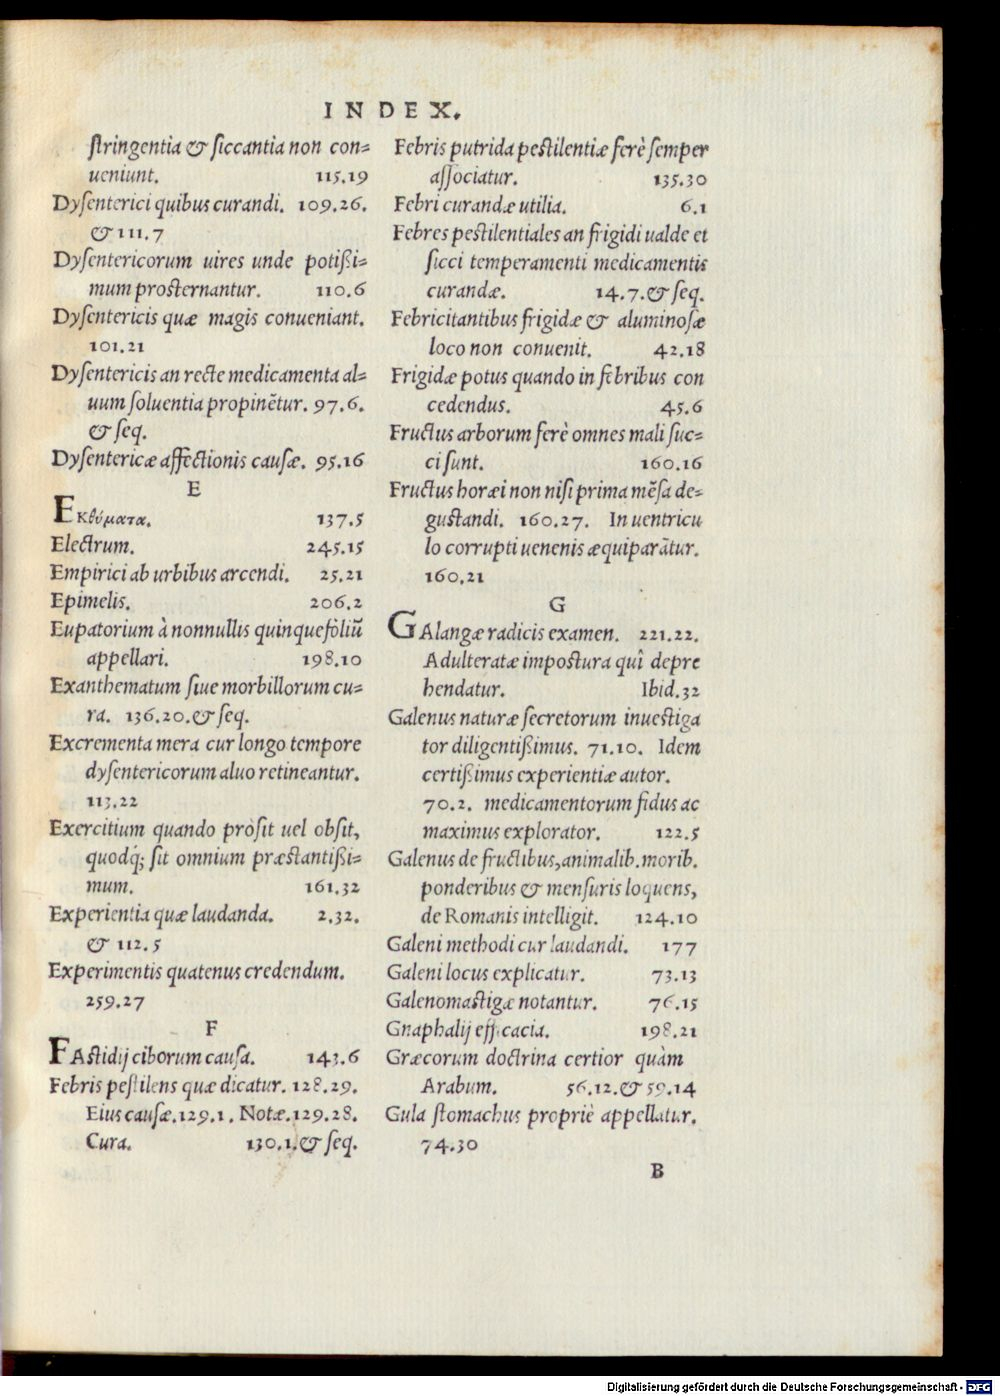 INDEX.
ſtringentia & ſiccantia non con=
ueniunt. 115.19
Dyſenterici quibus curandi. 109.26.
& 111.7
Dyſentericorum uires unde potißi=
mum proſternantur. 110.6
Dyſentericis quæ magis conueniant.
101.21
Dyſentericis an recte medicamenta al=
uum ſoluentia propinẽtur. 97.6.
& ſeq.
Dyſentericæ affectionis cauſæ. 95.16
E
Εκθύματα. 137.5
Electrum. 245.15
Empirici ab urbibus arcendi. 25.21
Epimelis. 206.2
Eupatorium à nonnullis quinquefoliũ
appellari. 198.10
Exanthematum ſiue morbillorum cu=
ra. 136.20.& ſeq.
Excrementa mera cur longo tempore
dyſentericorum aluo retineantur.
113.22
Exercitium quando proſit uel obſit,
quodq́; ſit omnium præſtantißi=
mum. 161.32
Experientia quæ laudanda. 2.32.
& 112.5
Experimentis quatenus credendum.
259.27
F
FAſtidij ciborum cauſa. 143.6
Febris peſtilens quæ dicatur. 128.29.
Eius cauſæ.129.1. Notæ.129.28.
Cura. 130.1.& ſeq.
Febris putrida peſtilentiæ ferè ſemper
aſſociatur. 135.30
Febri curandæ utilia. 6.1
Febres peſtilentiales an frigidi ualde et
ſicci temperamenti medicamentis
curandæ. 14.7.& ſeq.
Febricitantibus frigidæ & aluminoſæ
loco non conuenit. 42.18
Frigidæ potus quando in febribus con
cedendus. 45.6
Fructus arborum ferè omnes mali ſuc=
ci ſunt. 160.16
Fructus horæi non niſi prima mẽſa de=
guſtandi. 160.27. In uentricu
lo corrupti uenenis æquiparãtur.
160.21
G
GAlangæ radicis examen. 221.22.
Adulteratæ impoſtura quî depre
hendatur. Ibid.32
Galenus naturæ ſecretorum inueſtiga
tor diligentißimus. 71.10. Idem
certißimus experientiæ autor.
70.2. medicamentorum fidus ac
maximus explorator. 122.5
Galenus de fructibus,animalib.morib.
ponderibus & menſuris loquens,
de Romanis intelligit. 124.10
Galeni methodi cur laudandi. 177
Galeni locus explicatur. 73.13
Galenomaſtigæ notantur. 76.15
Gnaphalij efficacia. 198.21
Græcorum doctrina certior quàm
Arabum. 56.12.& 59.14
Gula ſtomachus propriè appellatur.
74.30
B
Digitalisierung gefördert durch die Deutsche Forschungsgemeinschaft - DFG